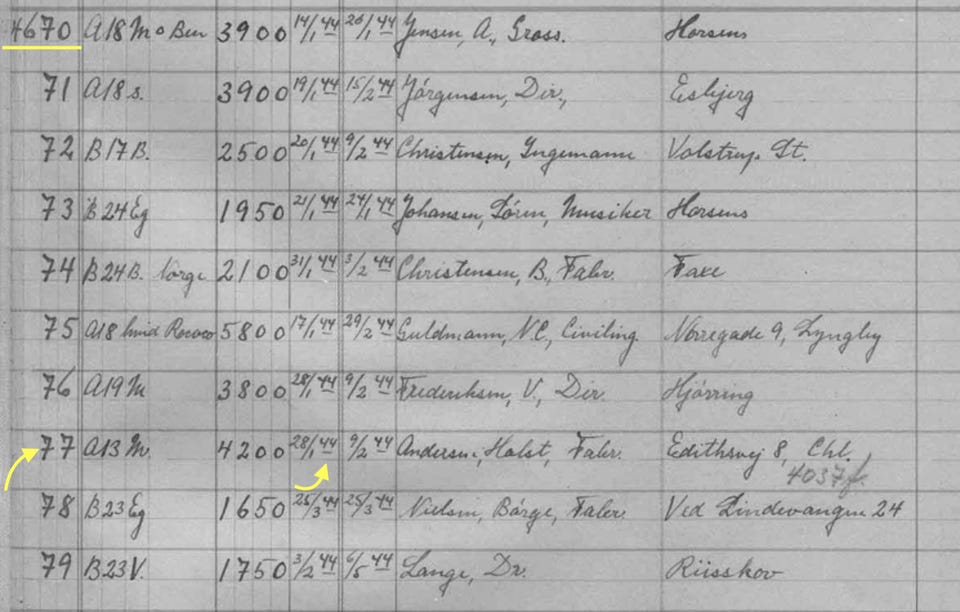 4670 A18 M o Ben 3900 14/1 44 26/1 44 Jensen, A., Gross. Horsens
71 A18 s. 3900 19/1 44 15/2 44 Jörgensen, Dir., Esbjerg
72 B17 B. 2500 20/1 44 9/2 44 Christensen, Ingemann Volstrup St.
73 B24 Eg 1950 21/1 44 24/1 44 Johansen, Sören, Musiker Horsens
74 B24 B. Norge 2100 31/1 44 3/2 44 Christensen, B., Fabr. Faxe
75 A18 hvid Rococo 5800 17/1 44 29/2 44 Guldmann, N.C., Civiling Nörregade 9, Lyngby
76 A19 M 3800 28/1 44 9/2 44 Frederiksen, V., Dir. Hjörring
77 A13 M. 4200 28/1 44 9/2 44 Andersen, Holst, Fabr. Edithsvej 8, Chl.
4037
78 B23 Eg 1650 25/3 44 25/3 44 Nielsen, Börge, Fabr. Ved Lindevangen 24
79 B23 V. 1750 3/2 44 6/5 44 Lange, Dr. Riisskov